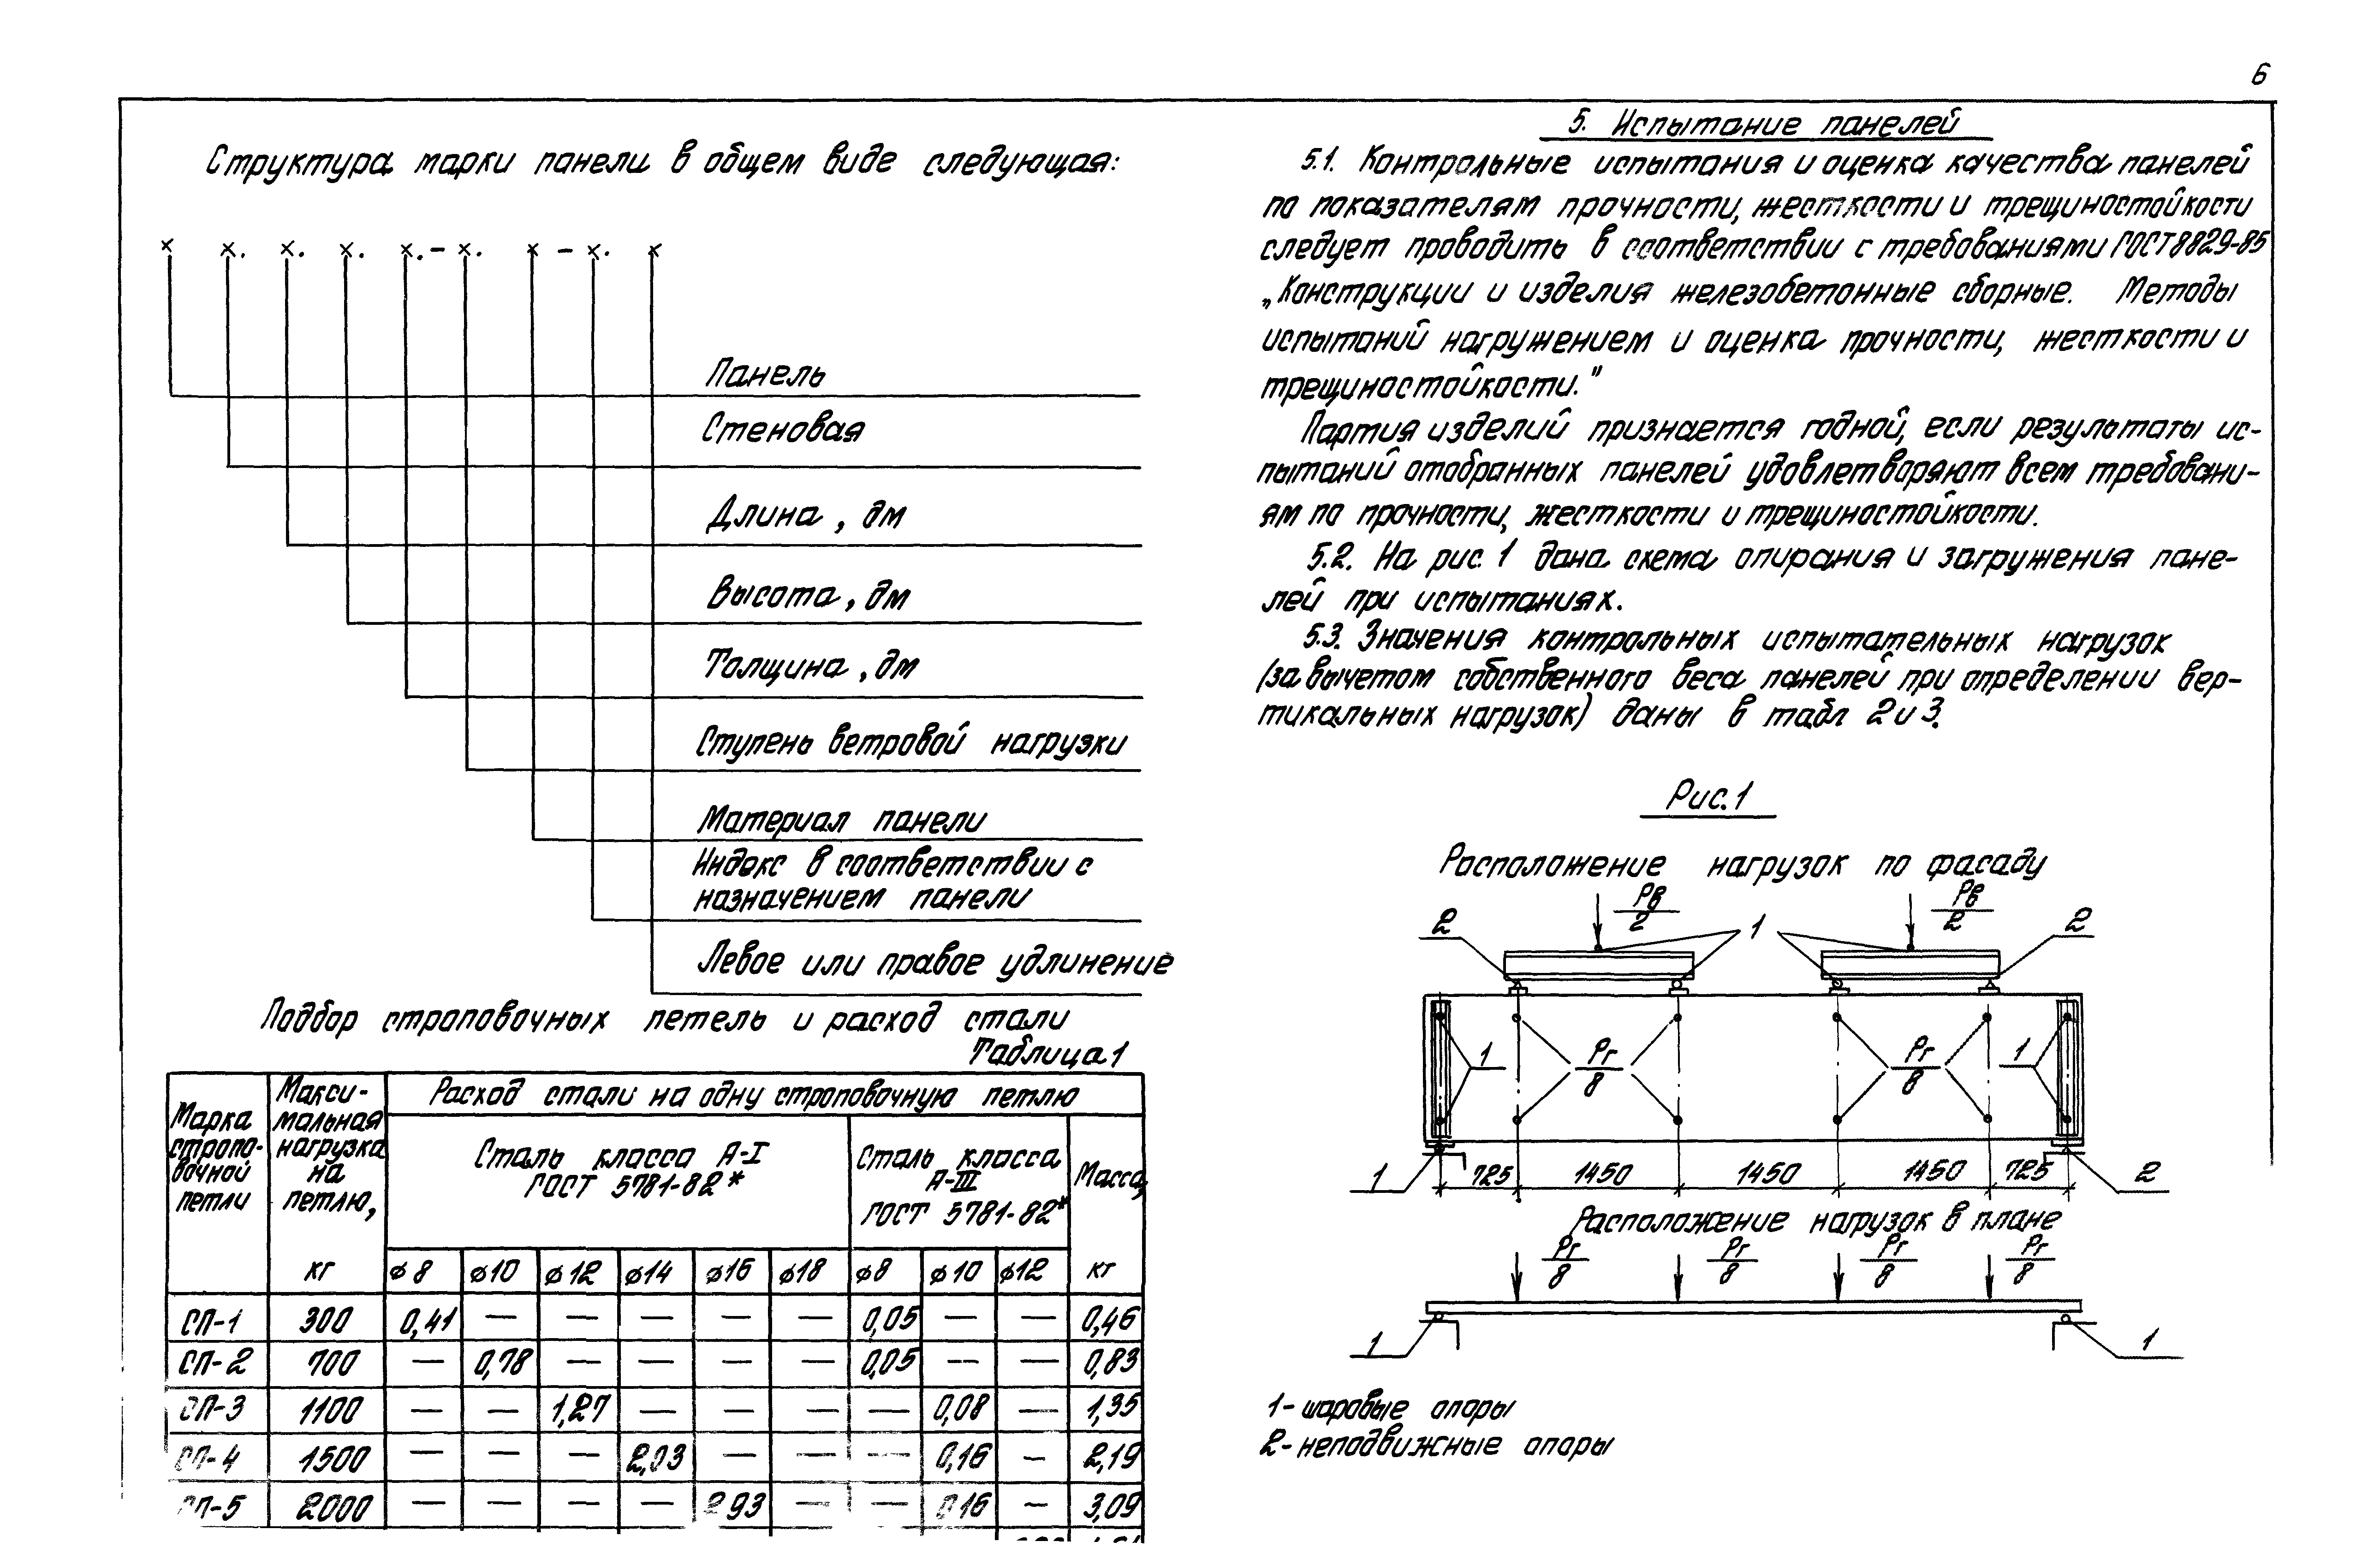 6
Структура марки панели в общем виде следующая:
х х. х. х. х.-х. х -х. х
Панель
Стеновая
Длина, дм
Высота, дм
Толщина, дм
Ступень ветровой нагрузки
Материал панели
Индекс в соответствии с
назначением панели
Левое или правое удлинение
Подбор строповочных петель и расход стали
Таблица 1
Марка строповочной петли
Максимальная нагрузка на петлю, кг
Расход стали на одну строповочную петлю
Сталь класса А-I
ГОСТ 5781-82*
Сталь класса
А-III
ГОСТ 5781-82*
Масса, кг
ø8 ø10 ø12 ø14 ø16 ø18 ø8 ø10 ø12
СП-1 300 0,41 — — — — — 0,05 — — 0,46
СП-2 700 — 0,78 — — — — 0,05 — — 0,83
СП-3 1100 — — 1,27 — — — — 0,08 — 1,35
СП-4 1500 — — — 2,03 — — — 0,16 — 2,19
СП-5 2000 — — — — 2,93 — — 0,16 — 3,09
5. Испытание панелей
5.1. Контрольные испытания и оценка качества панелей
по показателям прочности, жесткости и трещиностойкости
следует проводить в соответствии с требованиями ГОСТ 8829-85
„Конструкции и изделия железобетонные сборные. Методы
испытаний нагружением и оценка прочности, жесткости и
трещиностойкости."
Партия изделий признается годной, если результаты ис-
пытаний отобранных панелей удовлетворяют всем требовани-
ям по прочности, жесткости и трещиностойкости.
5.2. На рис. 1 дана схема опирания и загружения пане-
лей при испытаниях.
5.3. Значения контрольных испытательных нагрузок
(за вычетом собственного веса панелей при определении вер-
тикальных нагрузок) даны в табл 2 и 3.
Рис. 1
Расположение нагрузок по фасаду
Рв/2 Рв/2
2 1 2
1 Рг/8 Рг/8 1
1 725 1450 1450 1450 725 2
Расположение нагрузок в плане
Рг/8 Рг/8 Рг/8 Рг/8
1 1
1- шаровые опоры
2- неподвижные опоры